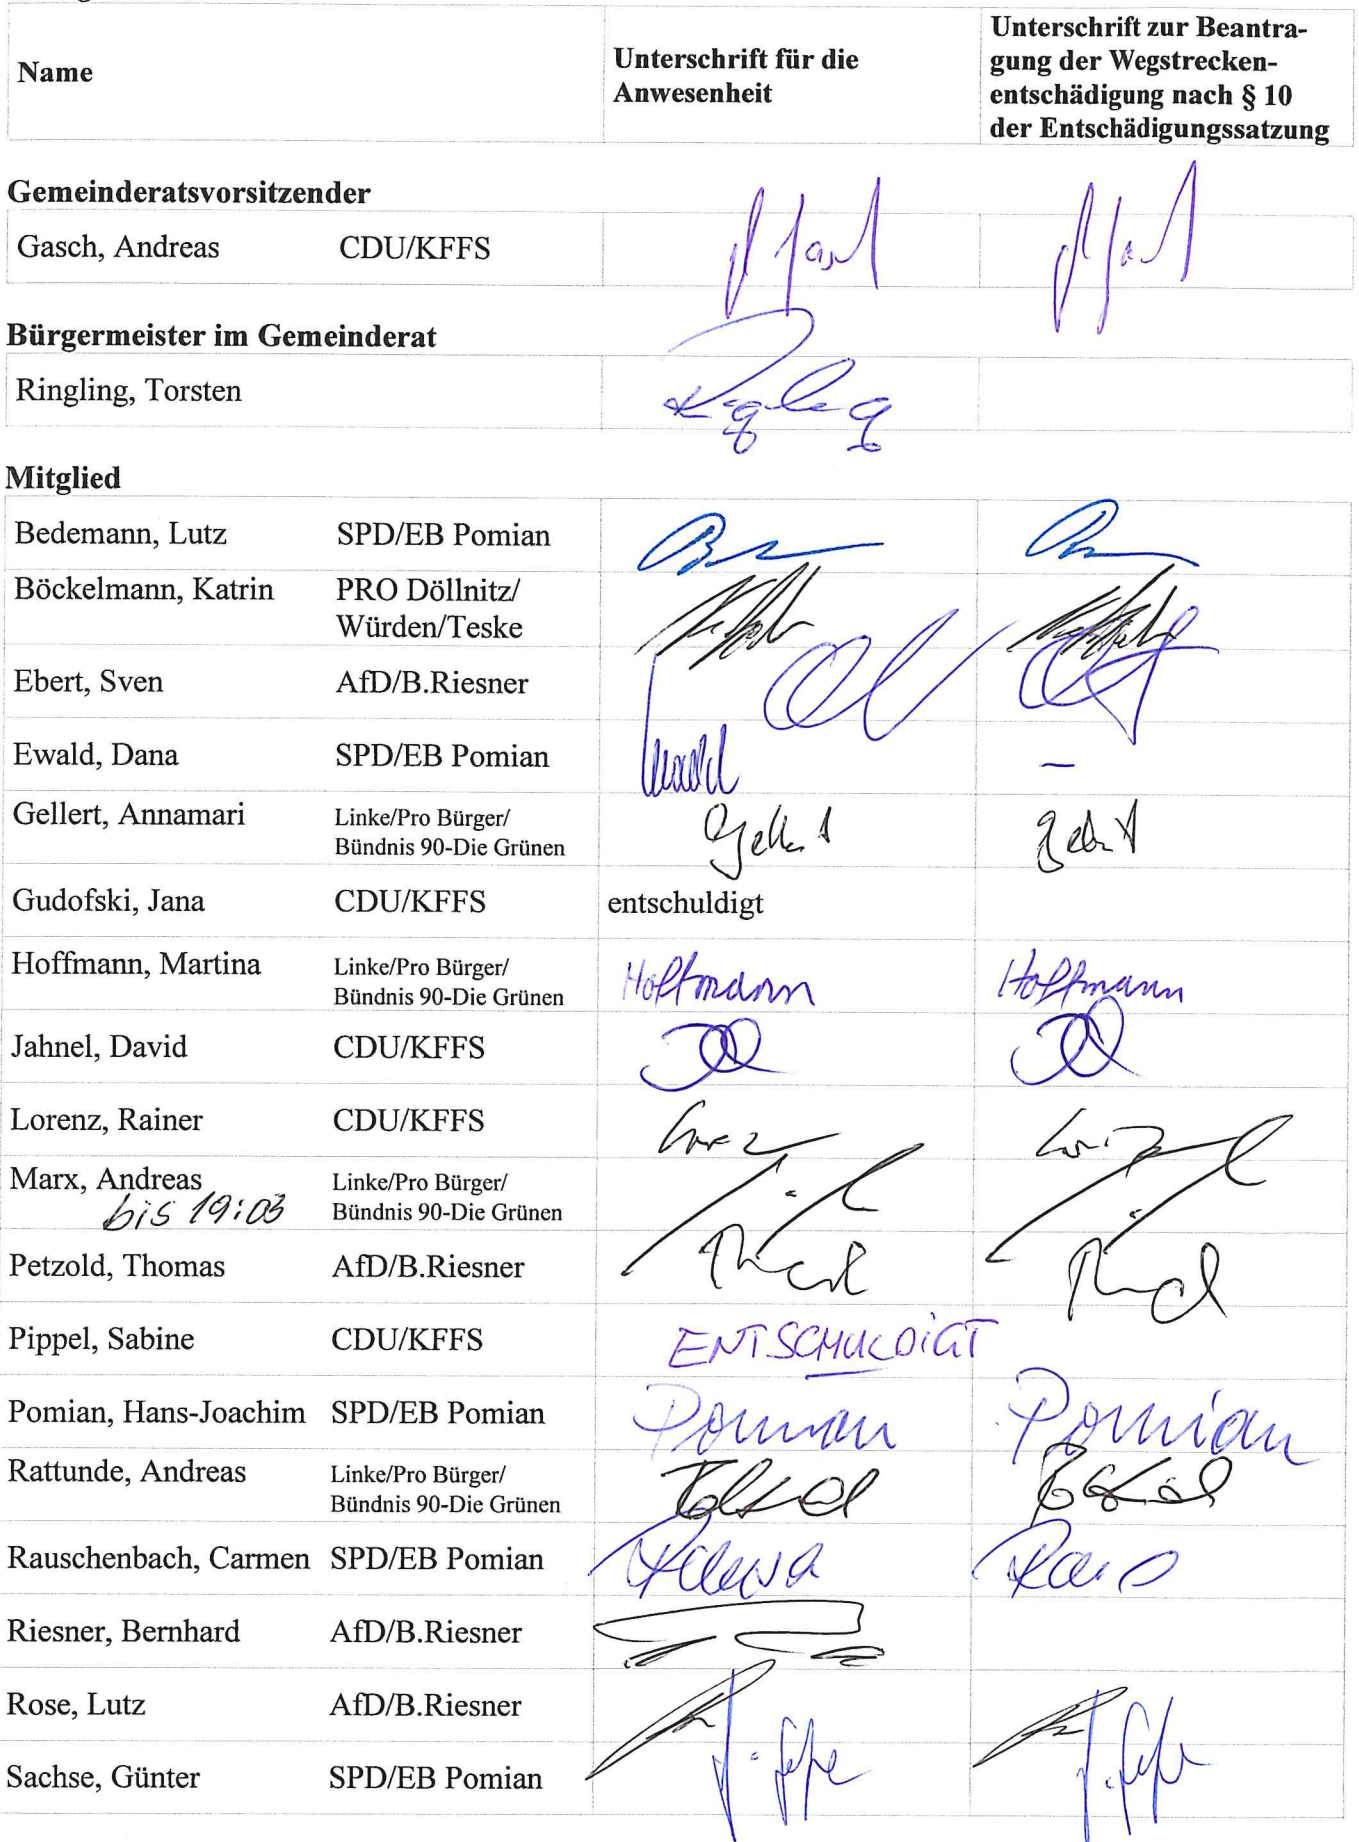 Name
Unterschrift für die
Anwesenheit
Unterschrift zur Beantra-
gung der Wegstrecken-
entschädigung nach § 10
der Entschädigungssatzung
Gemeinderatsvorsitzender
Gasch, Andreas CDU/KFFS
Bürgermeister im Gemeinderat
Ringling, Torsten
Mitglied
Bedemann, Lutz SPD/EB Pomian
Böckelmann, Katrin PRO Döllnitz/
Würden/Teske
Ebert, Sven AfD/B.Riesner
Ewald, Dana SPD/EB Pomian –
Gellert, Annamari Linke/Pro Bürger/
Bündnis 90-Die Grünen
Gudofski, Jana CDU/KFFS entschuldigt
Hoffmann, Martina Linke/Pro Bürger/ Hoffmann Hoffmann
Bündnis 90-Die Grünen
Jahnel, David CDU/KFFS
Lorenz, Rainer CDU/KFFS
Marx, Andreas Linke/Pro Bürger/
bis 19:03 Bündnis 90-Die Grünen
Petzold, Thomas AfD/B.Riesner
Pippel, Sabine CDU/KFFS ENTSCHULDIGT
Pomian, Hans-Joachim SPD/EB Pomian Pomian Pomian
Rattunde, Andreas Linke/Pro Bürger/
Bündnis 90-Die Grünen
Rauschenbach, Carmen SPD/EB Pomian
Riesner, Bernhard AfD/B.Riesner
Rose, Lutz AfD/B.Riesner
Sachse, Günter SPD/EB Pomian